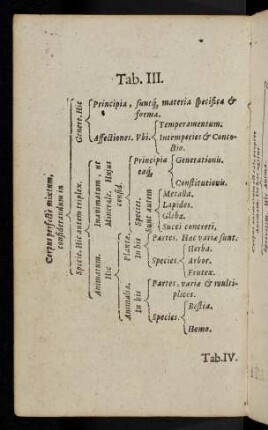 Tab. III.
Corpus perfectè mixtum,
considerandum in
Genere. Hic
Principia, suntq; materia specifica &
forma.
Affectiones. Vbi.
Temperamentum.
Intemperies & Conco-
ctio.
Specie. Hic autem triplex.
Inanimatum, ut
Minerale. Hujus
consid.
Principia
eaq;
Generationis.
Constitutionis.
Species.
Sunt autem
Metalla.
Lapides.
Glebæ.
Succi concreti.
Animatum.
Hic
Planta.
In his
Partes. Hæ variæ sunt.
Species.
Herba.
Arbor.
Frutex.
Animalia.
In his
Partes. variæ & multi-
plices.
Species.
Bestia.
Homo.
Tab. IV.